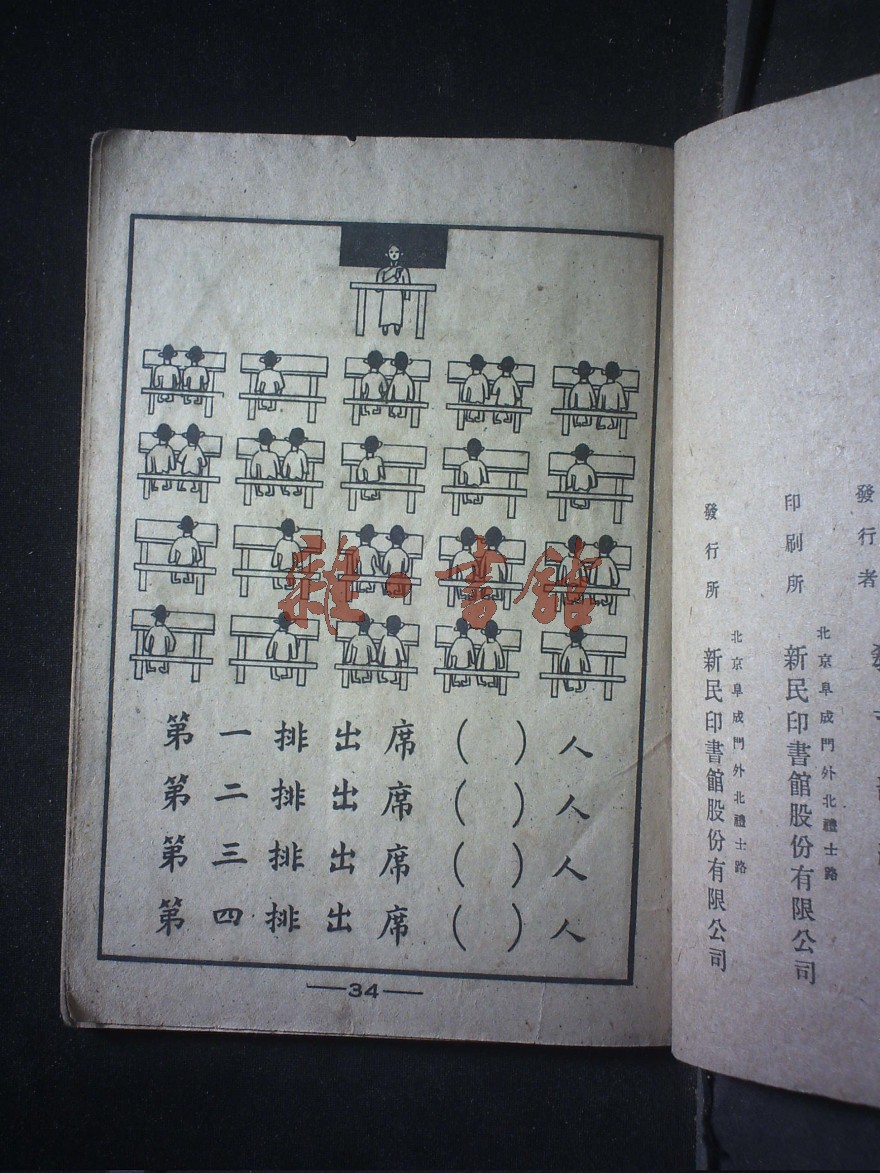 第一排出席（ ）人
第二排出席（ ）人
第三排出席（ ）人
第四排出席（ ）人
34
雜·書館
發行者
印刷所
北京阜成門外北禮士路
新民印書館股份有限公司
發行所
北京阜成門外北禮士路
新民印書館股份有限公司